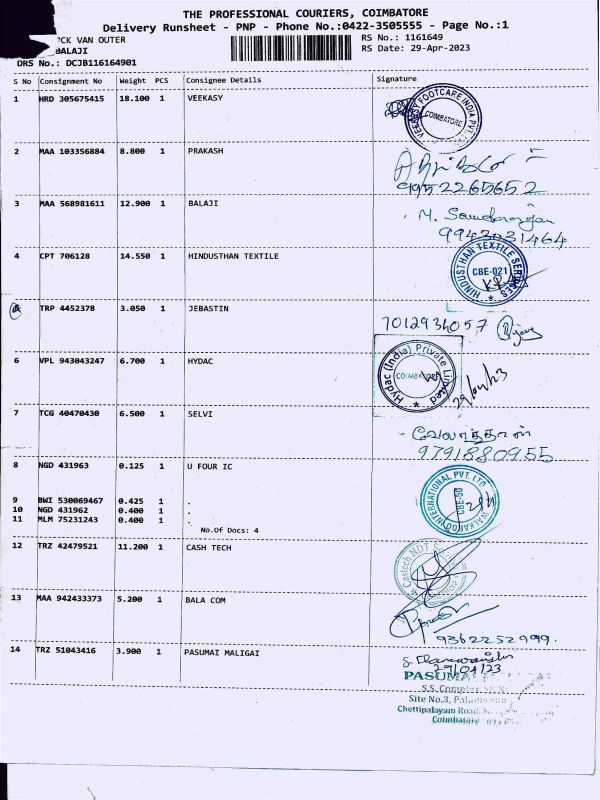 THE PROFESSIONAL COURIERS, COIMBATORE
Delivery Runsheet - PNP - Phone No.:0422-3505555 - Page No.:1
CK VAN OUTER
RS No.: 1161649
BALAJI
RS Date: 29-Apr-2023
DRS No.: DCJB116164901
S No Consignment No Weight PCS Consignee Details Signature
1 HRD 305675415 18.100 1 VEEKASY
VEEKASY FOOTCARE INDIA PVT.
COIMBATORE
2 MAA 103356884 8.800 1 PRAKASH
9952265652
3 MAA 568981611 12.900 1 BALAJI
M.
9943031464
4 CPT 706128 14.550 1 HINDUSTHAN TEXTILE
HINDUSTHAN TEXTILE SERVICES
CBE-021
TRP 4452378 3.050 1 JEBASTIN
7012934057
6 VPL 943043247 6.700 1 HYDAC
Hydac (India) Private Limited
29/04/23
7 TCG 40470430 6.500 1 SELVI
9791880955
8 NGD 431963 0.125 1 U FOUR IC
INTERNATIONAL PVT. LTD
9 BWI 530069467 0.425 1 .
10 NGD 431962 0.400 1 .
11 MLM 75231243 0.400 1 .
No.Of Docs: 4
12 TRZ 42479521 11.200 1 CASH TECH
Castech NDT
13 MAA 942433373 5.200 1 BALA COM
9362252999
14 TRZ 51043416 3.900 1 PASUMAI MALIGAI
29/04/23
S.S. Complex
Site No.3,
Chettipalayam Road,
Coimbatore